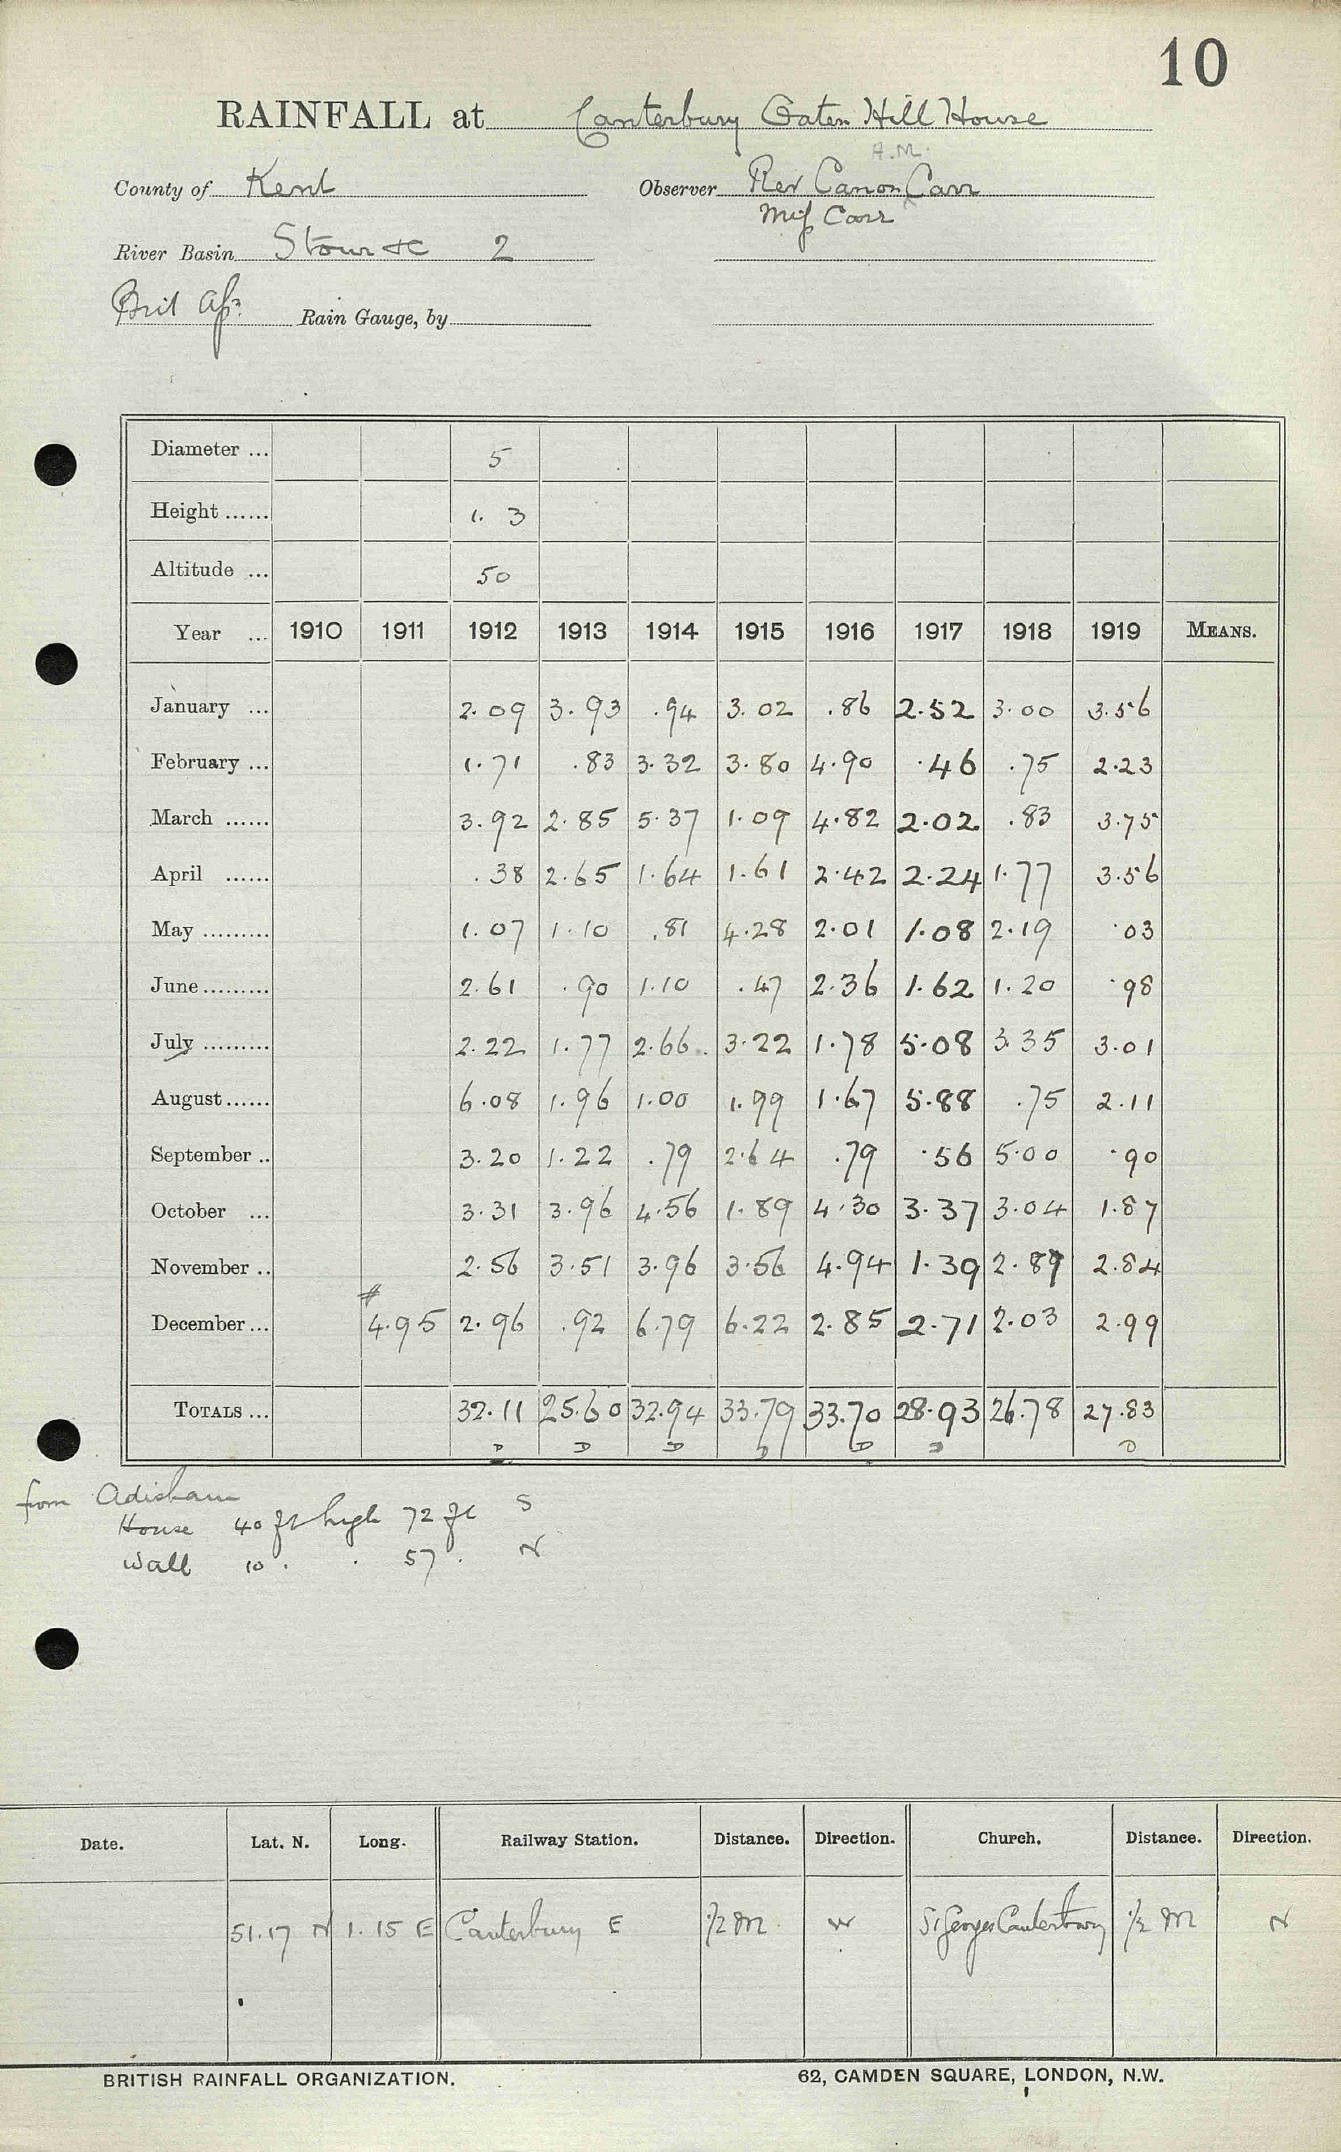 10
RAINFALL at Canterbury Oaten Hill House
A.M.
County of Kent Observer Rev Canon Carr
Miss Carr
River Basin Stour &c 2
Rain Gauge, by
Diameter ... 5
Height ...... 1. 3
Altitude ... 50
Year ... 1910 1911 1912 1913 1914 1915 1916 1917 1918 1919 MEANS.
January ... 2.09 3.93 .94 3.02 .86 2.52 3.00 3.56
February ... 1.71 .83 3.32 3.80 4.90 .46 .75 2.23
March ...... 3.92 2.85 5.37 1.09 4.82 2.02 .83 3.75
April ...... .38 2.65 1.64 1.61 2.42 2.24 1.77 3.56
May ......... 1.07 1.10 .81 4.28 2.01 1.08 2.19 .03
June ......... 2.61 .90 1.10 .47 2.36 1.62 1.20 .98
July ......... 2.22 1.77 2.66 3.22 1.78 5.08 3.35 3.01
August ...... 6.08 1.96 1.00 1.99 1.67 5.88 .75 2.11
September .. 3.20 1.22 .79 2.64 .79 .56 5.00 .90
October ... 3.31 3.96 4.56 1.89 4.30 3.37 3.04 1.87
November .. 2.56 3.51 3.96 3.56 4.94 1.39 2.89 2.84
#
December ... 4.95 2.96 .92 6.79 6.22 2.85 2.71 2.03 2.99
TOTALS ... 32.11 25.60 32.94 33.79 33.70 28.93 26.78 27.83
D D D D D D D
from Adisham
House 40 ft high 72 ft S
Wall 10 . . 57 . N
Date. Lat. N. Long. Railway Station. Distance. Direction. Church. Distance. Direction.
51.17 N 1.15 E Canterbury E 1/2 M W St Georges Canterbury 1/2 M N
BRITISH RAINFALL ORGANIZATION. 62, CAMDEN SQUARE, LONDON, N.W.